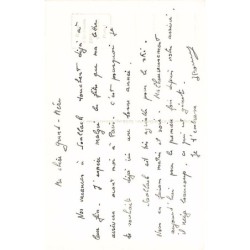 Ma chère grand-Mère
Nos vacances à Saalbach touchent déjà à
leur fin. J'espère malgré le fait que ma lettre
arrivera avant moi à Paris. C'est pourquoi je
te souhaite déjà une bonne année.
Saalbach est très agréable pour le ski.
Nous en faisons matin et soir. Malheureusement
aujourd'hui pour la première fois depuis notre arrivée
il neige beaucoup ce qui est
Je t'embrasse